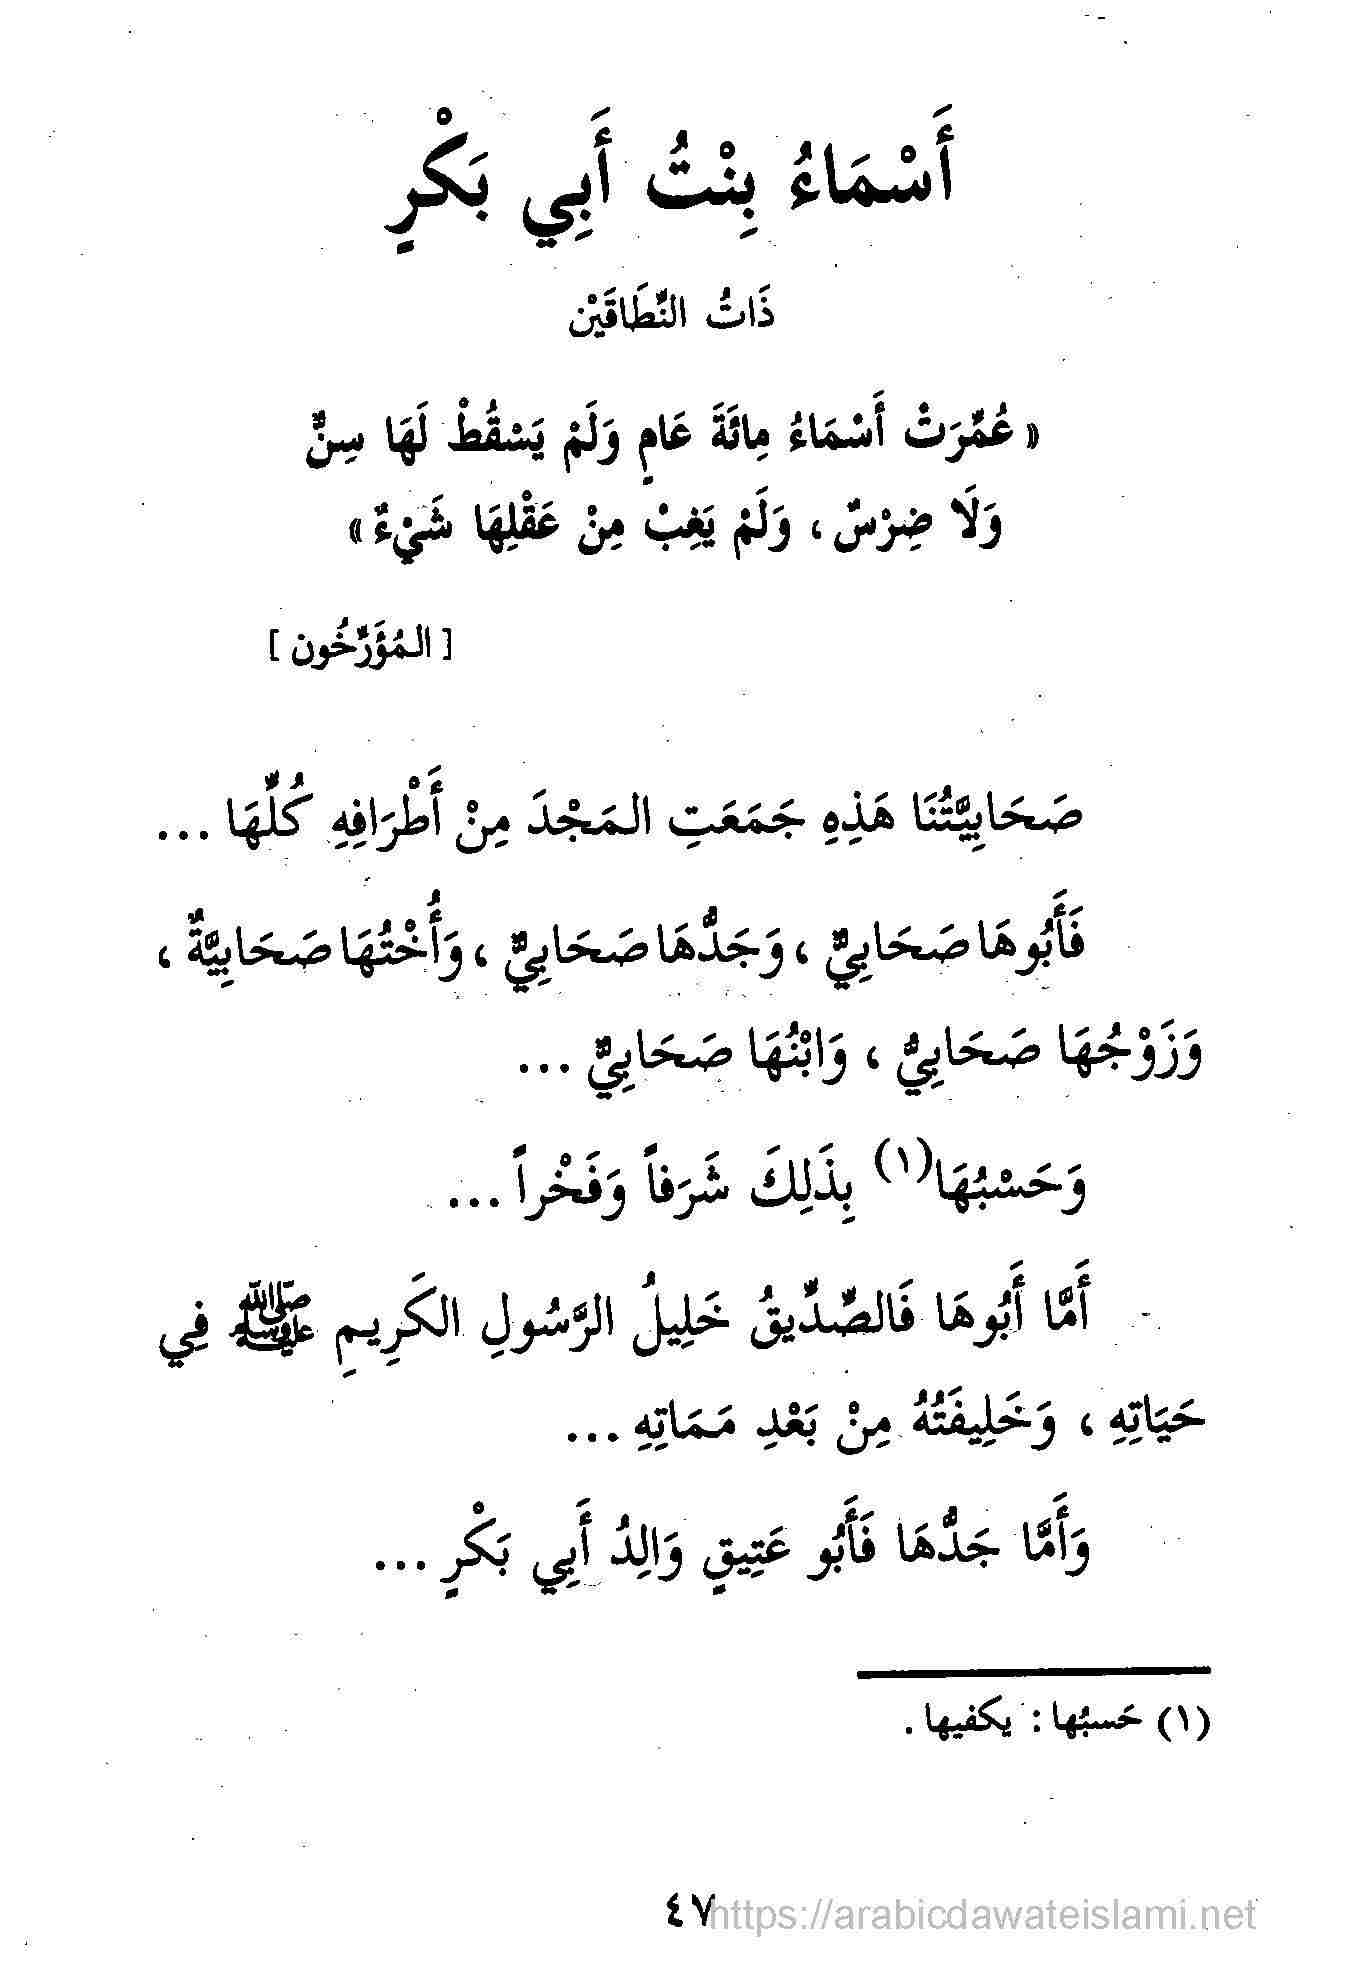 أَسْمَاءُ بِنْتُ أَبِي بَكْرٍ
ذَاتُ النِّطَاقَيْن
« عُمِّرَتْ أَسْمَاءُ مِائَةَ عَامٍ وَلَمْ يَسْقُطْ لَهَا سِنٌّ
وَلَا ضِرْسٌ ، وَلَمْ يَغِبْ مِنْ عَقْلِهَا شَيْءٌ »
[ المُؤَرِّخُون ]
صَحَابِيَّتُنَا هَذِهِ جَمَعَتِ المَجْدَ مِنْ أَطْرَافِهِ كُلِّهَا ...
فَأَبُوهَا صَحَابِيٌّ ، وَجَدُّهَا صَحَابِيٌّ ، وَأُخْتُهَا صَحَابِيَّةٌ ،
وَزَوْجُهَا صَحَابِيُّ ، وَابْنُهَا صَحَابِيٌّ ...
وَحَسْبُهَا(١) بِذَلِكَ شَرَفاً وَفَخْراً ...
أَمَّا أَبُوهَا فَالصِّدِّيقُ خَلِيلُ الرَّسُولِ الكَرِيمِ ﷺ فِي
حَيَاتِهِ ، وَخَلِيفَتُهُ مِنْ بَعْدِ مَمَاتِهِ ...
وَأَمَّا جَدُّهَا فَأَبُو عَتِيقٍ وَالِدُ أَبِي بَكْرٍ ...
(١) حَسبُها : يكفيها .
٤٧
https://arabicdawateislami.net